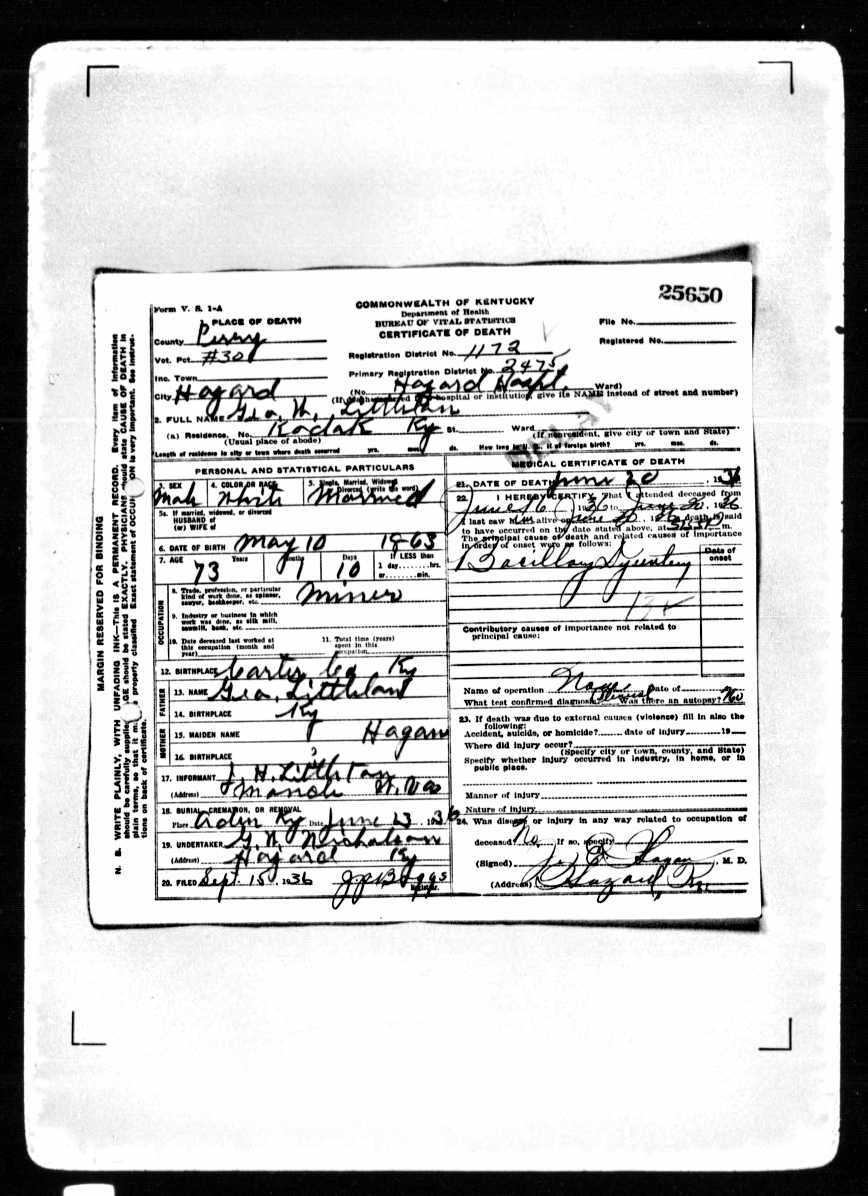 25650
Form V. S. 1-A
COMMONWEALTH OF KENTUCKY
Department of Health
BUREAU OF VITAL STATISTICS
CERTIFICATE OF DEATH
PLACE OF DEATH
File No.
County Perry
Registered No.
Vot. Pct. #30
Registration District No. 1172
Inc. Town
Primary Registration District No. 2475
City Hazard (No. Hazard Hospt. Ward)
(If death occurred in hospital or institution, give its NAME instead of street and number)
2. FULL NAME Geo. W. Littleton
(a) Residence. No. Kodak Ky St. Ward
(Usual place of abode) (If nonresident, give city or town and State)
Length of residence in city or town where death occurred yrs. mos. ds. How long in U. S. if of foreign birth? yrs. mos. ds.
DELAY
PERSONAL AND STATISTICAL PARTICULARS
3. SEX Male
4. COLOR OR RACE White
5. Single, Married, Widowed, Divorced (write the word) Married
5a. If married, widowed, or divorced
HUSBAND of
(or) WIFE of
6. DATE OF BIRTH May 10 1863
7. AGE 73 Years 1 Months 10 Days If LESS than
1 day hrs.
or min.
OCCUPATION
8. Trade, profession, or particular kind of work done, as spinner, sawyer, bookkeeper, etc. Miner
9. Industry or business in which work was done, as silk mill, sawmill, bank, etc.
10. Date deceased last worked at this occupation (month and year)
11. Total time (years) spent in this occupation
12. BIRTHPLACE Carter Co Ky
FATHER
13. NAME Geo. Littleton
14. BIRTHPLACE Ky
MOTHER
15. MAIDEN NAME Hagan
16. BIRTHPLACE ?
17. INFORMANT J. H. Littleton
(Address) W. Va
18. BURIAL, CREMATION, OR REMOVAL
Place Ky Date June 23, 1936
19. UNDERTAKER G. W. Nicholson
(Address) Hazard Ky
20. FILED Sept. 15, 1936 J.P. Boggs
Registrar.
MEDICAL CERTIFICATE OF DEATH
21. DATE OF DEATH June 20, 1936
22. I HEREBY CERTIFY, That I attended deceased from
June 16, 1936 to June 20, 1936
I last saw him alive on June 20, 1936 death is said
to have occurred on the date stated above, at m.
The principal cause of death and related causes of importance
in order of onset were as follows:
Date of onset
Bacillary Dysentery
Contributory causes of importance not related to
principal cause:
Name of operation None Date of
What test confirmed diagnosis? Clinical Was there an autopsy? No
23. If death was due to external causes (violence) fill in also the
following:
Accident, suicide, or homicide? date of injury 19
Where did injury occur?
(Specify city or town, county, and State)
Specify whether injury occurred in industry, in home, or in
public place.
Manner of injury
Nature of injury
24. Was disease or injury in any way related to occupation of
deceased? No If so, specify
(Signed) Hagan, M. D.
(Address) Hazard, Ky.
MARGIN RESERVED FOR BINDING
N. B. WRITE PLAINLY, WITH UNFADING INK—This is A PERMANENT RECORD. Every item of information
should be carefully supplied. AGE should be stated EXACTLY. PHYSICIANS should state CAUSE OF DEATH in
plain terms, so that it may be properly classified. Exact statement of OCCUPATION is very important. See instruc-
tions on back of certificate.